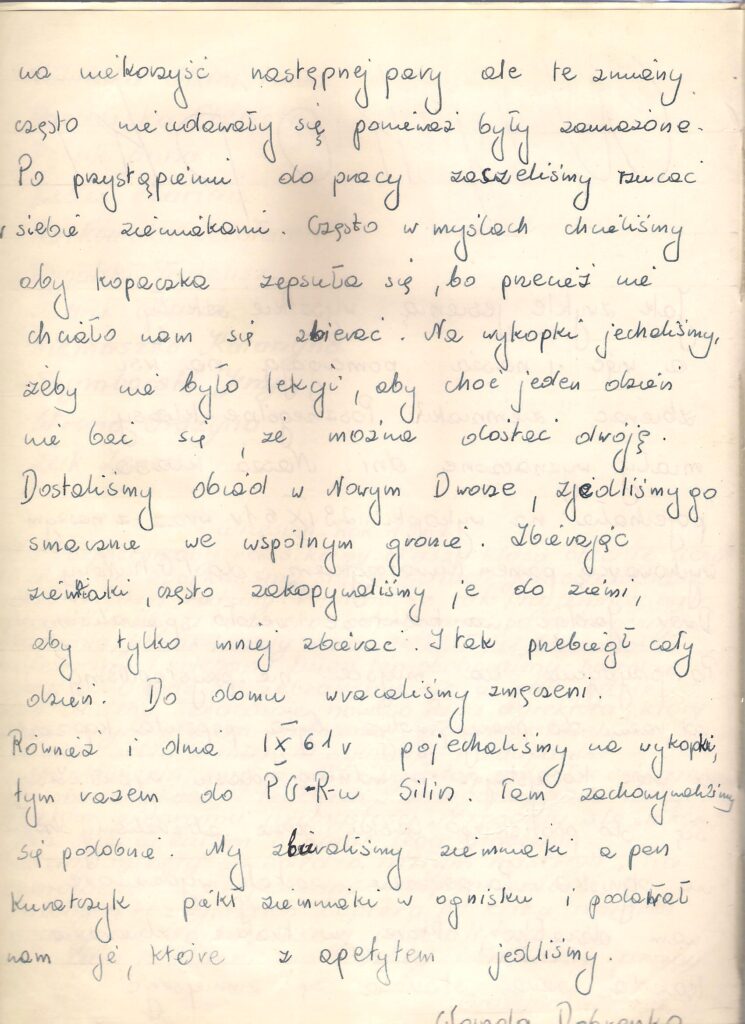 na niekorzyść następnej pary ale te zmiany
często nie udawały się ponieważ były zauważone.
Po przystąpieniu do pracy zaczeliśmy rzucać
w siebie ziemniakami. Często w myślach chcieliśmy
aby kopaczka zepsuła się, bo przecież nie
chciało nam się zbierać. Na wykopki jechaliśmy,
żeby nie było lekcji, aby choć jeden dzień
nie bać się, że można dostać dwóję.
Dostaliśmy obiad w Nowym Dworze, zjedliśmy go
smacznie we wspólnym gronie. Zbierając
ziemniaki, często zakopywaliśmy je do ziemi,
aby tylko mniej zbierać. I tak przebiegł cały
dzień. Do domu wracaliśmy zmęczeni.
Również i dnia 1 X 61 r pojechaliśmy na wykopki,
tym razem do PG-R-u Silin. Tam zachowywaliśmy
się podobnie. My zbieraliśmy ziemniaki a pan
Kuratczyk piekł ziemniaki w ognisku i podawał
nam je, które z apetytem jedliśmy.